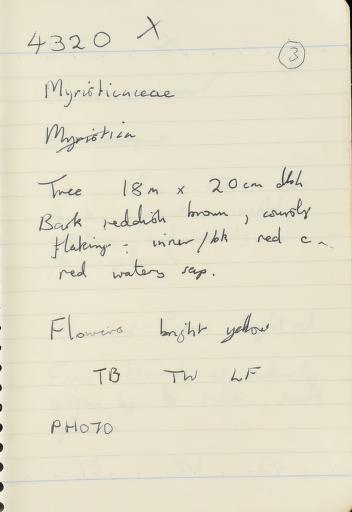 4320 X
3
Myristicaceae
Myristica
Tree 18m x 20cm dbh
Bark reddish brown, coarsely
flaking; inner/bk red c
red watery sap.
Flowers bright yellow
TB TW LF
PHOTO